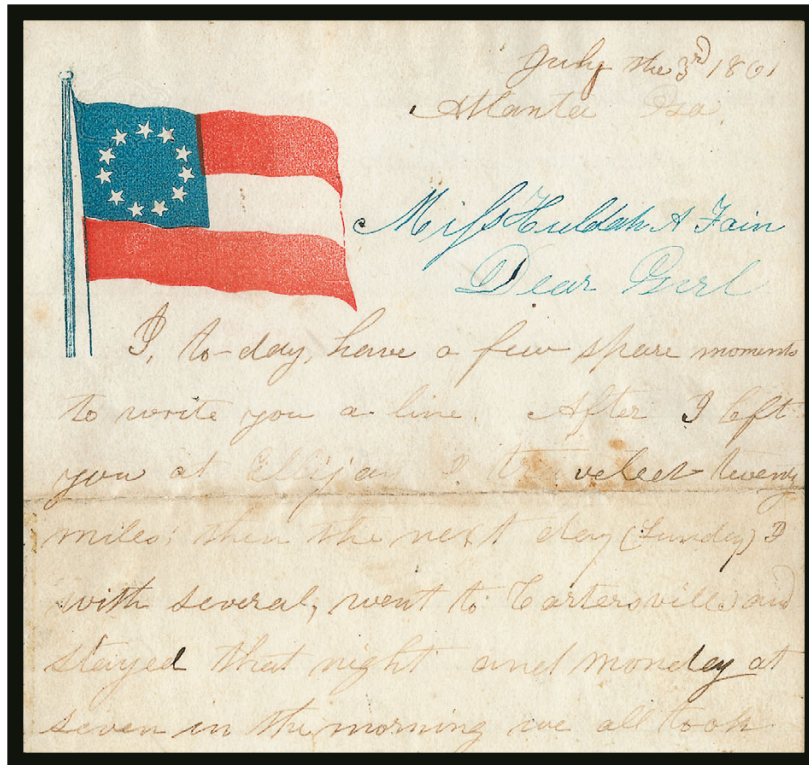 July the 3rd 1861
Atlanta Ga
Miss Huldah A Fain
Dear Gerl
I, to-day, have a few spare moments
to write you a line. After I left
you at Ellijay I traveled twenty
miles; then the next day (Sunday) I
with several, went to Cartersville and
stayed that night and monday at
seven in the morning we all took